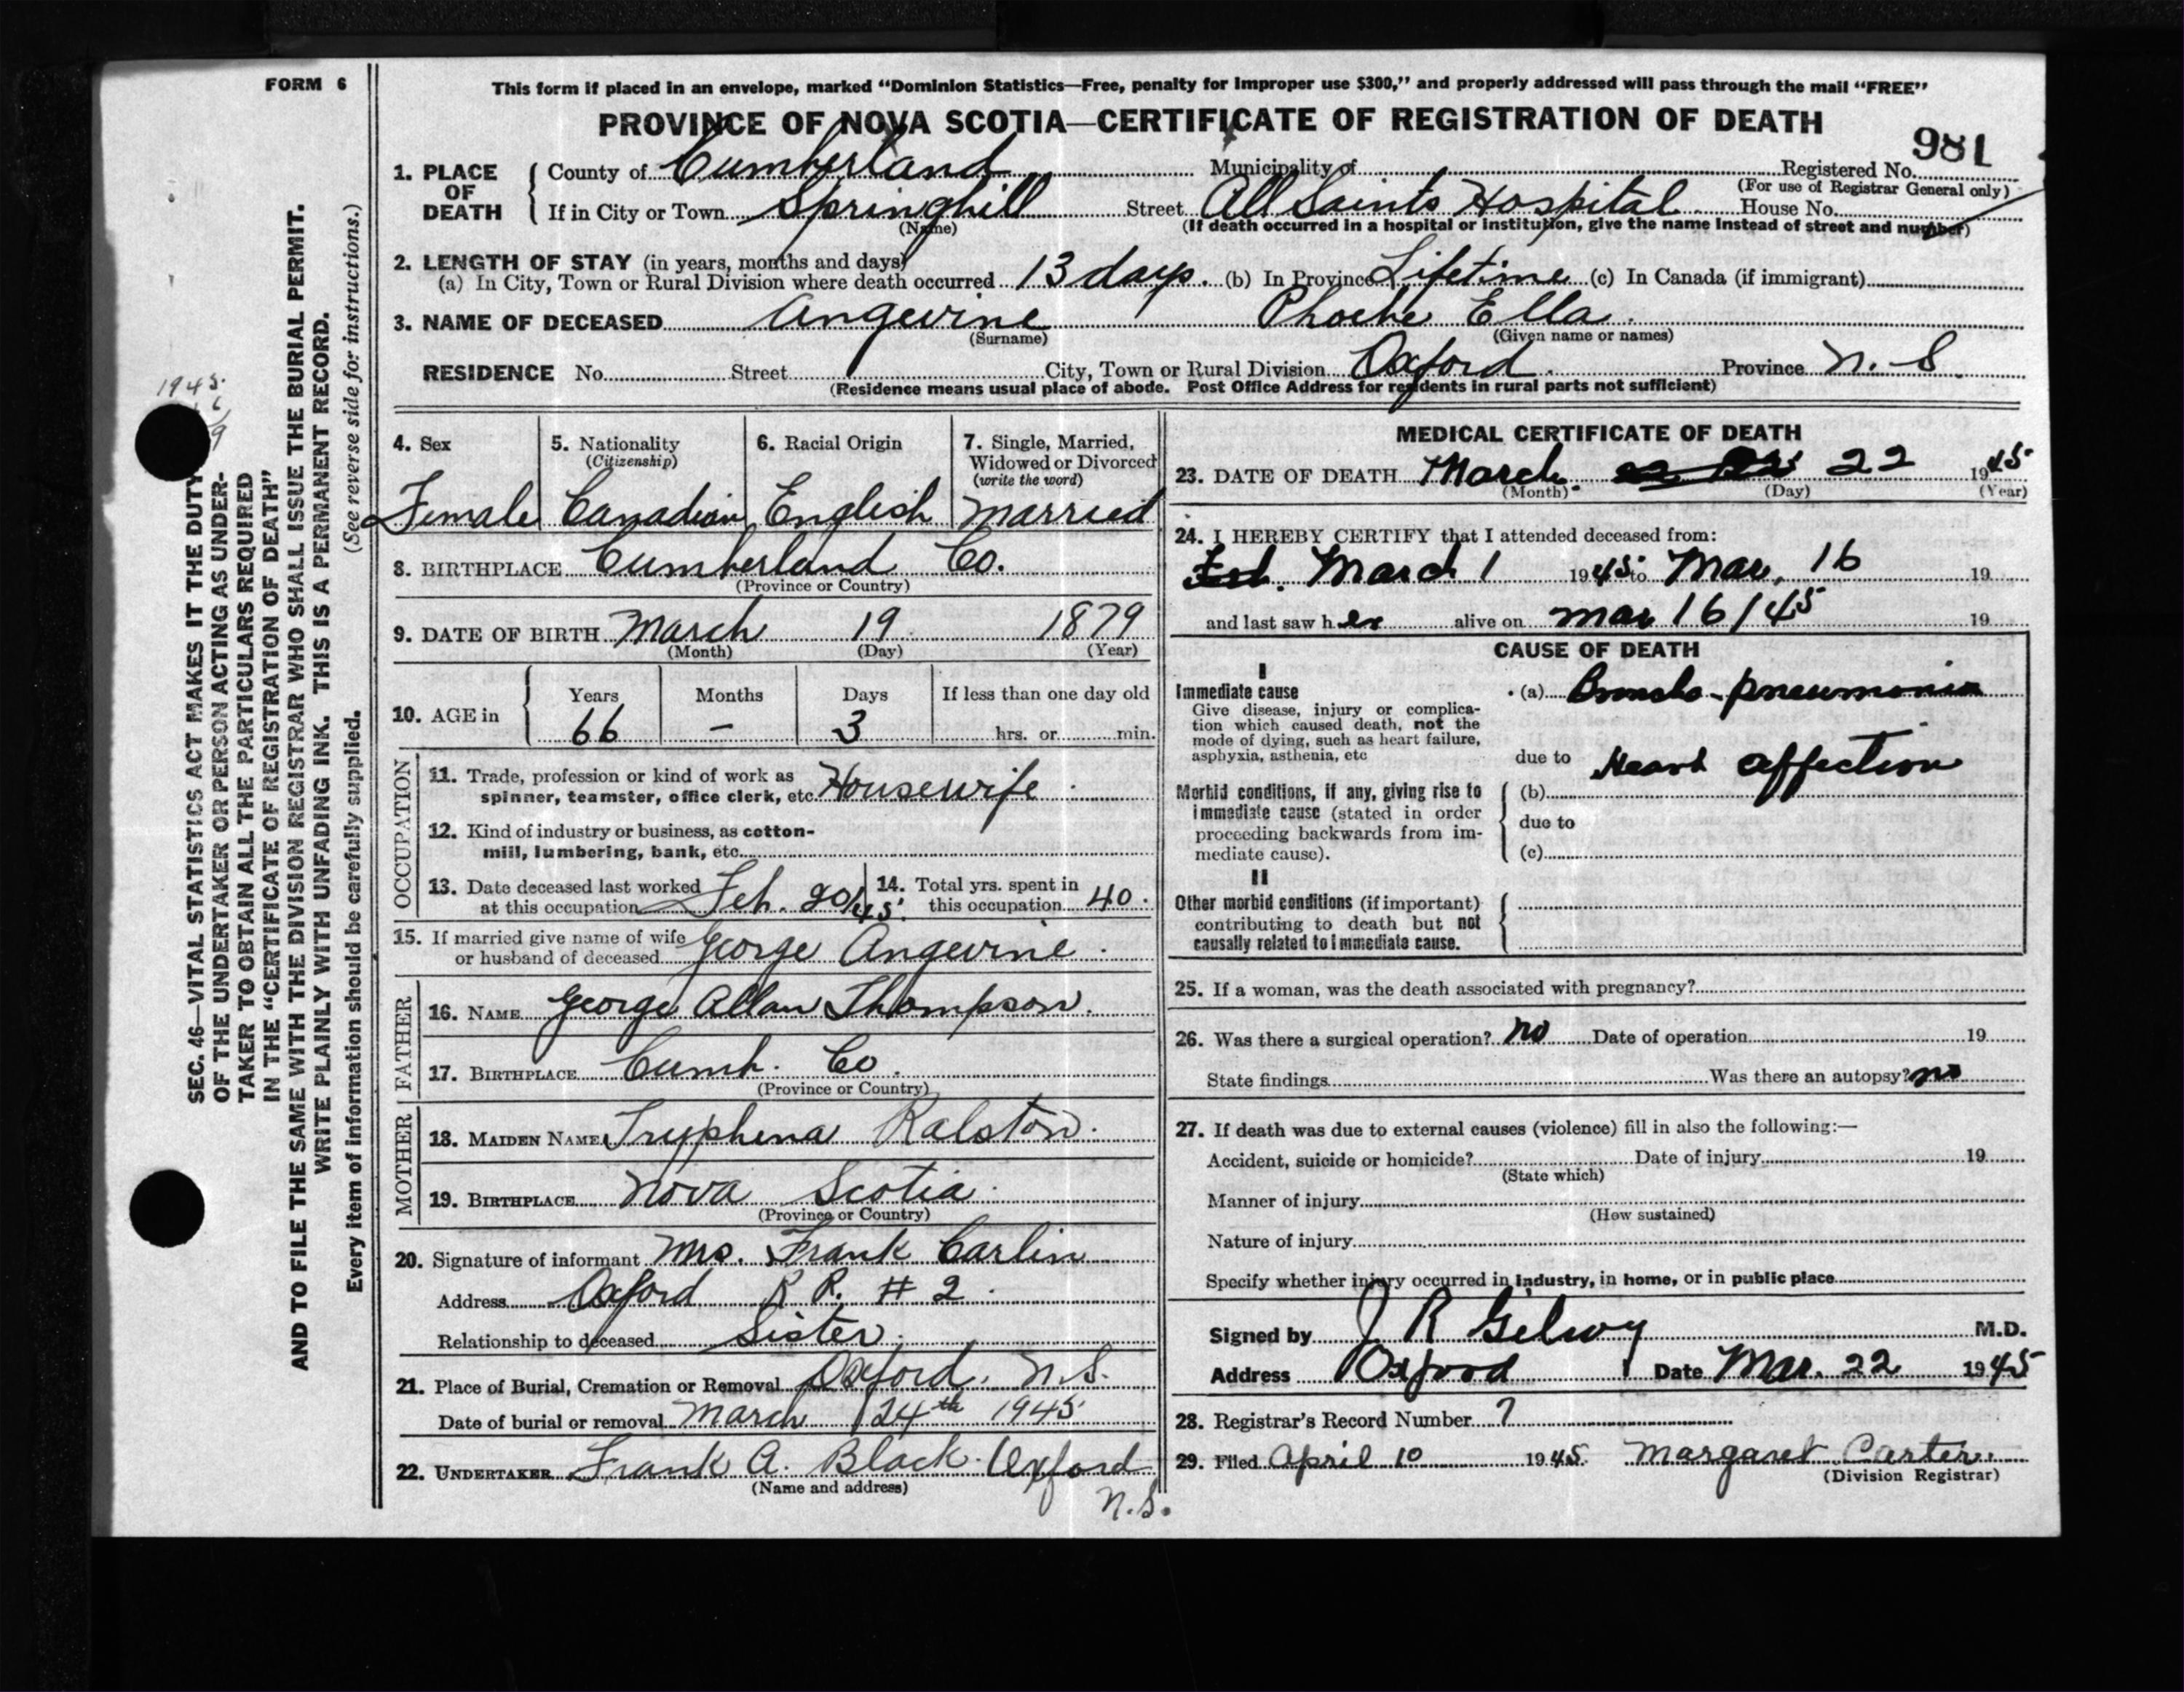 FORM 6
This form if placed in an envelope, marked “Dominion Statistics—Free, penalty for improper use $300,” and properly addressed will pass through the mail “FREE”
PROVINCE OF NOVA SCOTIA—CERTIFICATE OF REGISTRATION OF DEATH
981
1. PLACE OF DEATH { County of Cumberland Municipality of Registered No.
(For use of Registrar General only)
If in City or Town Springhill Street All Saints Hospital House No.
(Name) (If death occurred in a hospital or institution, give the name instead of street and number)
2. LENGTH OF STAY (in years, months and days)
(a) In City, Town or Rural Division where death occurred 13 days. (b) In Province Lifetime (c) In Canada (if immigrant)
3. NAME OF DECEASED Angevine Phoebe Ella.
(Surname) (Given name or names)
RESIDENCE No. Street City, Town or Rural Division Oxford. Province N. S.
(Residence means usual place of abode. Post Office Address for residents in rural parts not sufficient)
4. Sex 5. Nationality (Citizenship) 6. Racial Origin 7. Single, Married, Widowed or Divorced (write the word)
Female Canadian English Married
8. BIRTHPLACE Cumberland Co.
(Province or Country)
9. DATE OF BIRTH March 19 1879
(Month) (Day) (Year)
10. AGE in { Years Months Days If less than one day old
66 - 3 hrs. or min.
OCCUPATION
11. Trade, profession or kind of work as
spinner, teamster, office clerk, etc. Housewife
12. Kind of industry or business, as cotton-
mill, lumbering, bank, etc.
13. Date deceased last worked at this occupation Feb. 20/45. 14. Total yrs. spent in this occupation 40.
15. If married give name of wife or husband of deceased George Angevine.
FATHER
16. NAME George Allan Thompson.
17. BIRTHPLACE Cumb. Co.
(Province or Country)
MOTHER
18. MAIDEN NAME Tryphena Ralston.
19. BIRTHPLACE Nova Scotia
(Province or Country)
20. Signature of informant Mrs. Frank Carlin
Address Oxford R R. # 2
Relationship to deceased Sister.
21. Place of Burial, Cremation or Removal Oxford, N.S.
Date of burial or removal March 24th 1945
22. UNDERTAKER Frank A. Black. Oxford
(Name and address)
N.S.
MEDICAL CERTIFICATE OF DEATH
23. DATE OF DEATH March 22 1945
(Month) (Day) (Year)
24. I HEREBY CERTIFY that I attended deceased from:
Feb. March 1 1945 to Mar. 16 19
and last saw her alive on Mar 16/45 19
CAUSE OF DEATH
I
Immediate cause (a) Broncho-pneumonia
Give disease, injury or complica-
tion which caused death, not the
mode of dying, such as heart failure,
asphyxia, asthenia, etc due to Heart affection
Morbid conditions, if any, giving rise to { (b)
immediate cause (stated in order due to
proceeding backwards from im-
mediate cause). (c)
II
Other morbid conditions (if important)
contributing to death but not
causally related to immediate cause.
25. If a woman, was the death associated with pregnancy?
26. Was there a surgical operation? no Date of operation 19
State findings Was there an autopsy? no
27. If death was due to external causes (violence) fill in also the following:—
Accident, suicide or homicide? Date of injury 19
(State which)
Manner of injury
(How sustained)
Nature of injury
Specify whether injury occurred in industry, in home, or in public place
Signed by J R M.D.
Address Oxford Date Mar. 22 1945
28. Registrar's Record Number 7
29. Filed April 10 1945. Margaret Carter.
(Division Registrar)
SEC. 46—VITAL STATISTICS ACT MAKES IT THE DUTY
OF THE UNDERTAKER OR PERSON ACTING AS UNDER-
TAKER TO OBTAIN ALL THE PARTICULARS REQUIRED
IN THE “CERTIFICATE OF REGISTRATION OF DEATH”
AND TO FILE THE SAME WITH THE DIVISION REGISTRAR WHO SHALL ISSUE THE BURIAL PERMIT.
WRITE PLAINLY WITH UNFADING INK. THIS IS A PERMANENT RECORD.
(See reverse side for instructions.)
Every item of information should be carefully supplied.
1945